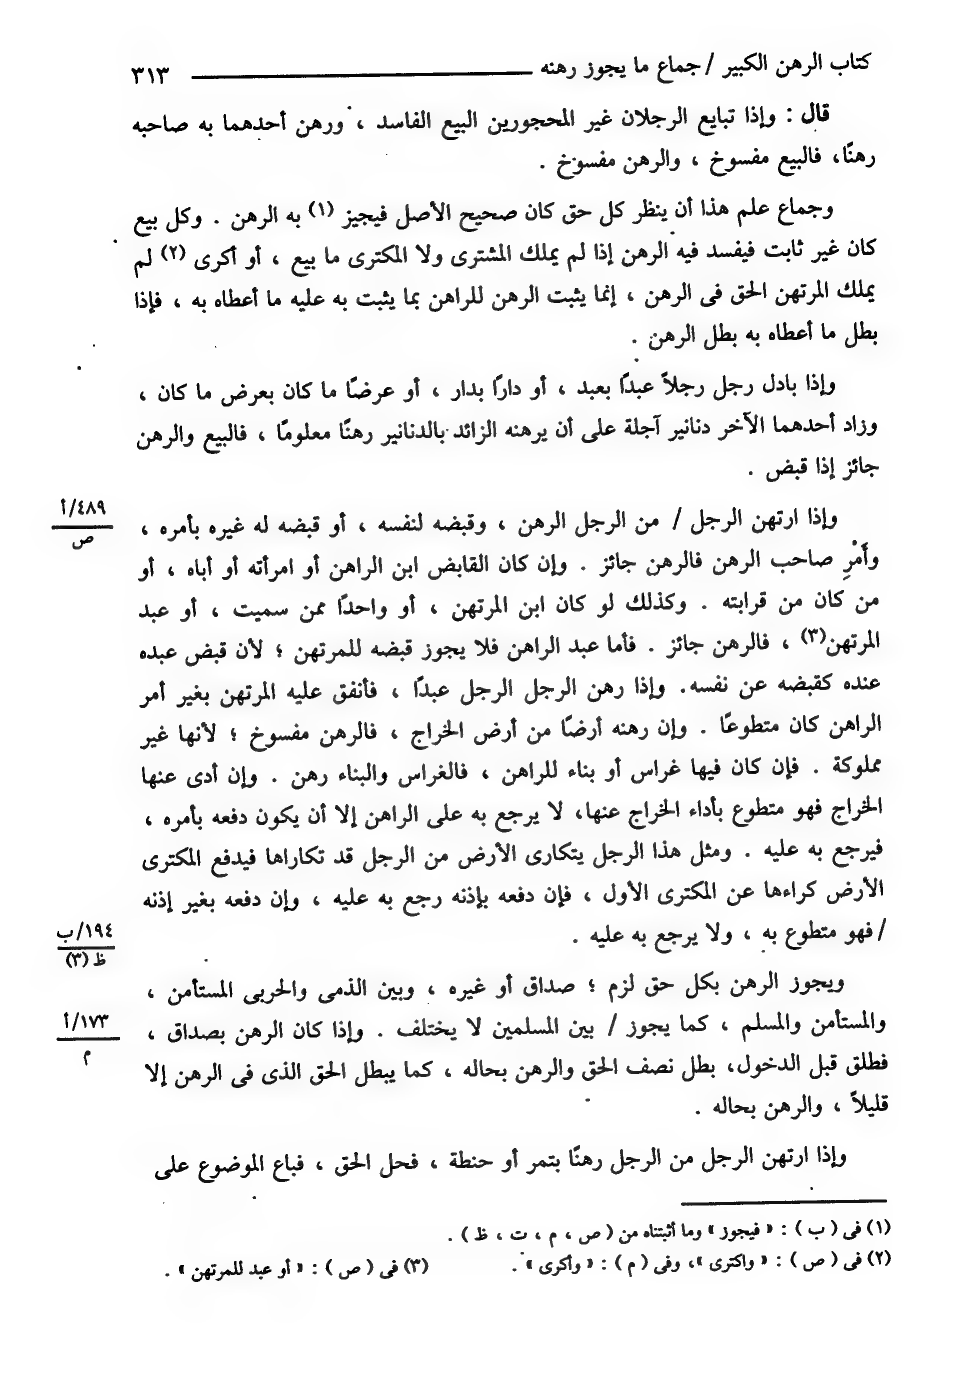 كتاب الرهن الكبير / جماع ما يجوز رهنه ــــــــــــ ٣١٣
قال : وإذا تبايع الرجلان غير المحجورين البيع الفاسد ، ورهن أحدهما به صاحبه
رهنًا، فالبيع مفسوخ ، والرهن مفسوخ .
وجماع علم هذا أن ينظر كل حق كان صحيح الأصل فيجيز (١) به الرهن . وكل بيع
كان غير ثابت فيفسد فيه الرهن إذا لم يملك المشترى ولا المكترى ما بيع ، أو أكرى (٢) لم
يملك المرتهن الحق فى الرهن ، إنما يثبت الرهن للراهن بما يثبت به عليه ما أعطاه به ، فإذا
بطل ما أعطاه به بطل الرهن .
وإذا بادل رجل رجلاً عبدًا بعبد ، أو دارًا بدار ، أو عرضًا ما كان بعرض ما كان ،
وزاد أحدهما الآخر دنانير آجلة على أن يرهنه الزائد بالدنانير رهنًا معلومًا ، فالبيع والرهن
جائز إذا قبض .
وإذا ارتهن الرجل / من الرجل الرهن ، وقبضه لنفسه ، أو قبضه له غيره بأمره ،
٤٨٩/أ
ص
وأَمْرِ صاحب الرهن فالرهن جائز . وإن كان القابض ابن الراهن أو امرأته أو أباه ، أو
من كان من قرابته . وكذلك لو كان ابن المرتهن ، أو واحدًا ممن سميت ، أو عبد
المرتهن(٣) ، فالرهن جائز . فأما عبد الراهن فلا يجوز قبضه للمرتهن ؛ لأن قبض عبده
عنده كقبضه عن نفسه. وإذا رهن الرجل الرجل عبدًا ، فأنفق عليه المرتهن بغير أمر
الراهن كان متطوعًا . وإن رهنه أرضًا من أرض الخراج ، فالرهن مفسوخ ؛ لأنها غير
مملوكة . فإن كان فيها غراس أو بناء للراهن ، فالغراس والبناء رهن . وإن أدى عنها
الخراج فهو متطوع بأداء الخراج عنها، لا يرجع به على الراهن إلا أن يكون دفعه بأمره ،
فيرجع به عليه . ومثل هذا الرجل يتكارى الأرض من الرجل قد تكاراها فيدفع المكترى
الأرض كراءها عن المكترى الأول ، فإن دفعه بإذنه رجع به عليه ، وإن دفعه بغير إذنه
/ فهو متطوع به ، ولا يرجع به عليه .
١٩٤/ب
ظ (٣)
ويجوز الرهن بكل حق لزم ؛ صداق أو غيره ، وبين الذمى والحربى المستأمن ،
والمستأمن والمسلم ، كما يجوز / بين المسلمين لا يختلف . وإذا كان الرهن بصداق ،
١٧٣/أ
م
فطلق قبل الدخول، بطل نصف الحق والرهن بحاله ، كما يبطل الحق الذى فى الرهن إلا
قليلاً ، والرهن بحاله .
وإذا ارتهن الرجل من الرجل رهنًا بتمر أو حنطة ، فحل الحق ، فباع الموضوع على
(١) فى ( ب ) : « فيجوز » وما أثبتناه من ( ص ، م ، ت ، ظ ) .
(٢) فى ( ص ) : « واكترى »، وفى ( م ) : « وأكرى » . (٣) فى ( ص ) : « أو عبد للمرتهن » .